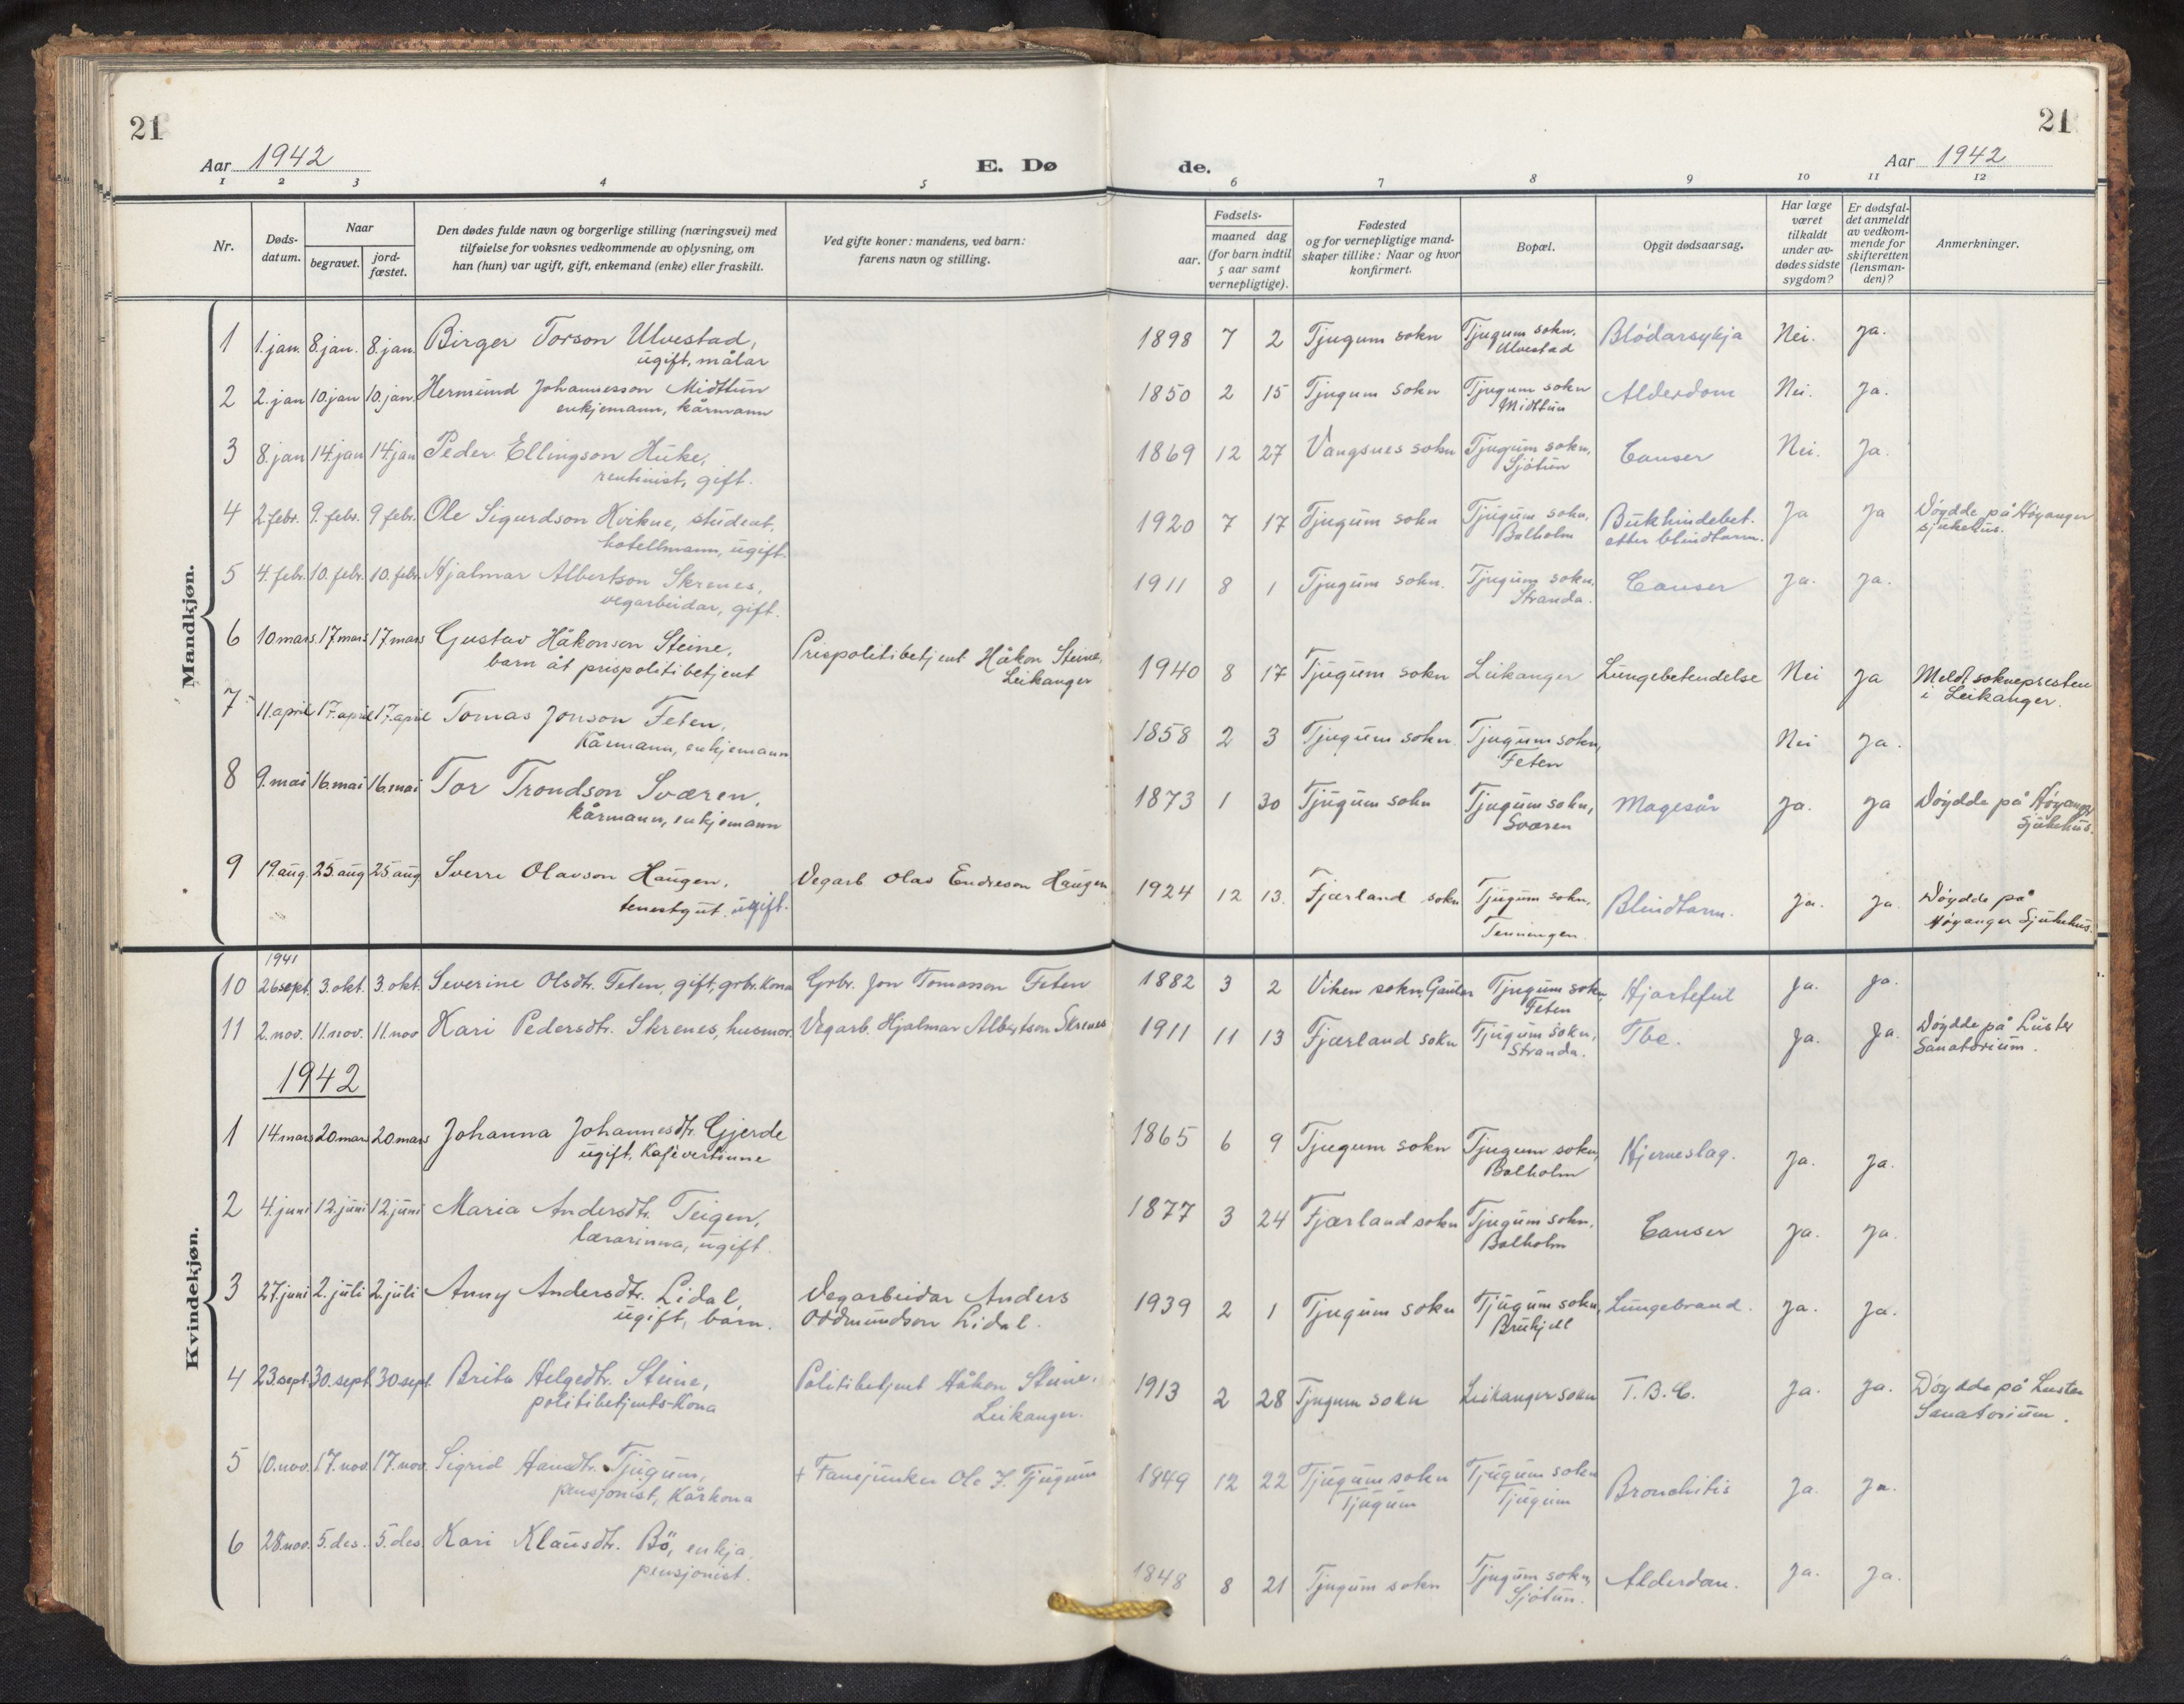 21
21
Aar 1942
E. Dø
de.
Aar 1942
1 2 3 4 5 6 7 8 9 10 11 12
Nr.
Døds-
datum.
Naar
begravet.
jord-
fæstet.
Den dødes fulde navn og borgerlige stilling (næringsvei) med
tilføielse for voksnes vedkommende av oplysning, om
han (hun) var ugift, gift, enkemand (enke) eller fraskilt.
Ved gifte koner: mandens, ved barn:
farens navn og stilling.
Fødsels-
aar.
maaned dag
(for barn indtil
5 aar samt
vernepligtige).
Fødested
og for vernepligtige mand-
skaper tillike: Naar og hvor
konfirmert.
Bopæl.
Opgit dødsaarsag.
Har læge
været
tilkaldt
under av-
dødes sidste
sygdom?
Er dødsfal-
det anmeldt
av vedkom-
mende for
skifteretten
(lensman-
den)?
Anmerkninger.
Mandkjøn.
1 1. jan. 8. jan. 8. jan. Birger Torson Ulvestad, 1898 7 2 Tjugum sokn Tjugum sokn. Blódarsykja Nei. Ja.
ugift, målar Ulvestad
2 2. jan 10. jan 10. jan. Hermund Johannesson Midttun 1850 2 15 Tjugum sokn Tjugum sokn Alderdom Nei. Ja.
enkjemann, kårmann Midttun
3 8. jan 14. jan 14. jan Peder Ellingson Huke, 1869 12 27 Vangsnes sokn Tjugum sokn, Canser Nei. Ja.
rentinist, gift. Sjótun
4 2. febr. 9. febr. 9 febr. Ole Sigurdson Kvikne, student, 1920 7 17 Tjugum sokn Tjugum sokn, Bukhindebet. Ja Ja Döydde på Höyanger
hotellmann, ugift. Balholm etter blindtarm. sjukehus.
5 4. febr. 10. febr. 10. febr. Hjalmar Albertson Skrenes, 1911 8 1 Tjugum sokn. Tjugum sokn, Canser Ja. Ja.
vegarbeidar, gift. Stranda.
6 10 mars. 17 mars 17 mars Gustav Håkonson Steine, Prispolitibetjent Håkon Steine, 1940 8 17 Tjugum sokn Leikanger Lungebetendelse Nei Ja Meldt soknepresten
barn åt prispolitibetjent Leikanger i Leikanger.
7 11. april 17. april 17. april Tomas Jonson Feten, 1858 2 3 Tjugum sokn Tjugum sokn, Nei Ja.
Kårmann, enkjemann Feten
8 9. mai 16. mai 16. mai Tor Trondson Sværen, 1873 1 30 Tjugum sokn Tjugum sokn, Magesår Ja. Ja Döydde på Höyanger
kårmann, enkjemann Sværen Sjukehus.
9 19. aug. 25. aug 25 aug Sverre Olavson Haugen, Vegarb Olav Endreson Haugen 1924 12 13. Fjærland sokn Tjugum sokn, Blindtarm. Ja. Ja Döydde på
tenestgut. ugift. Tenningen. Höyanger Sjukehus.
Kvindekjøn.
1941
10 26 sept. 3. okt. 3. okt. Severine Olsdtr. Feten, gift, grbr. kona Grbr. Jon Tomasson Feten 1882 3 2 Viken sokn, Gaular Tjugum sokn, Hjartefeil Ja. Ja.
Feten
11 2. nov. 11. nov. 11. nov Kari Pedersdtr. Skrenes, husmor. Vegarb. Hjalmar Albertson Skrenes 1911 11 13 Fjærland sokn Tjugum sokn, Tbc. Ja. Ja. Döydde på Luster
Stranda. Sanatorium.
1942
1 14 mars 20 mars 20 mars Johanna Johannesdtr. Gjerde 1865 6 9 Tjugum sokn Tjugum sokn, Hjerneslag. Ja. Ja.
ugift, Kafévertinne Balholm
2 4. juni 12. juni 12. juni Maria Andersdtr. Teigen, 1877 3 24 Fjærland sokn Tjugum sokn. Canser Ja. Ja.
lærarinna, ugift. Balholm
3 27. juni 2. juli 2. juli Anny Andersdtr. Lidal, Vegarbeidar Anders 1939 2 1 Tjugum sokn Tjugum sokn, Lungebrand. Ja. Ja.
ugift, barn. Oddmundson Lidal.
4 23. sept. 30. sept. 30 sept. Brita Helgedtr. Steine, Politibetjent Håkon Steine, 1913 2 28 Tjugum sokn Leikanger sokn T.B.C. Ja. Ja. Döydde på Luster
politibetjents-Kona Leikanger. Sanatorium.
5 10. nov. 17. nov. 17. nov. Sigrid Tjugum, + Fanejunker Ole J. Tjugum 1849 12 22 Tjugum sokn Tjugum sokn Bronchitis Ja. Ja.
pensjonist, Kårkona Tjugum Tjugum
6 28. nov. 5. des. 5. des. Kari Klausdtr. Bö, enkja, 1848 8 21 Tjugum sokn Tjugum sokn, Alderdom. Ja. Ja.
pensjonist. Sjótun.